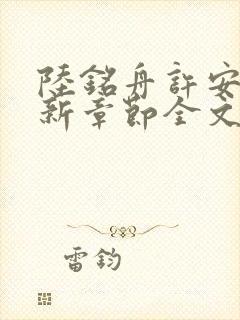 陸銘舟許安
新章節全文
雷鈞